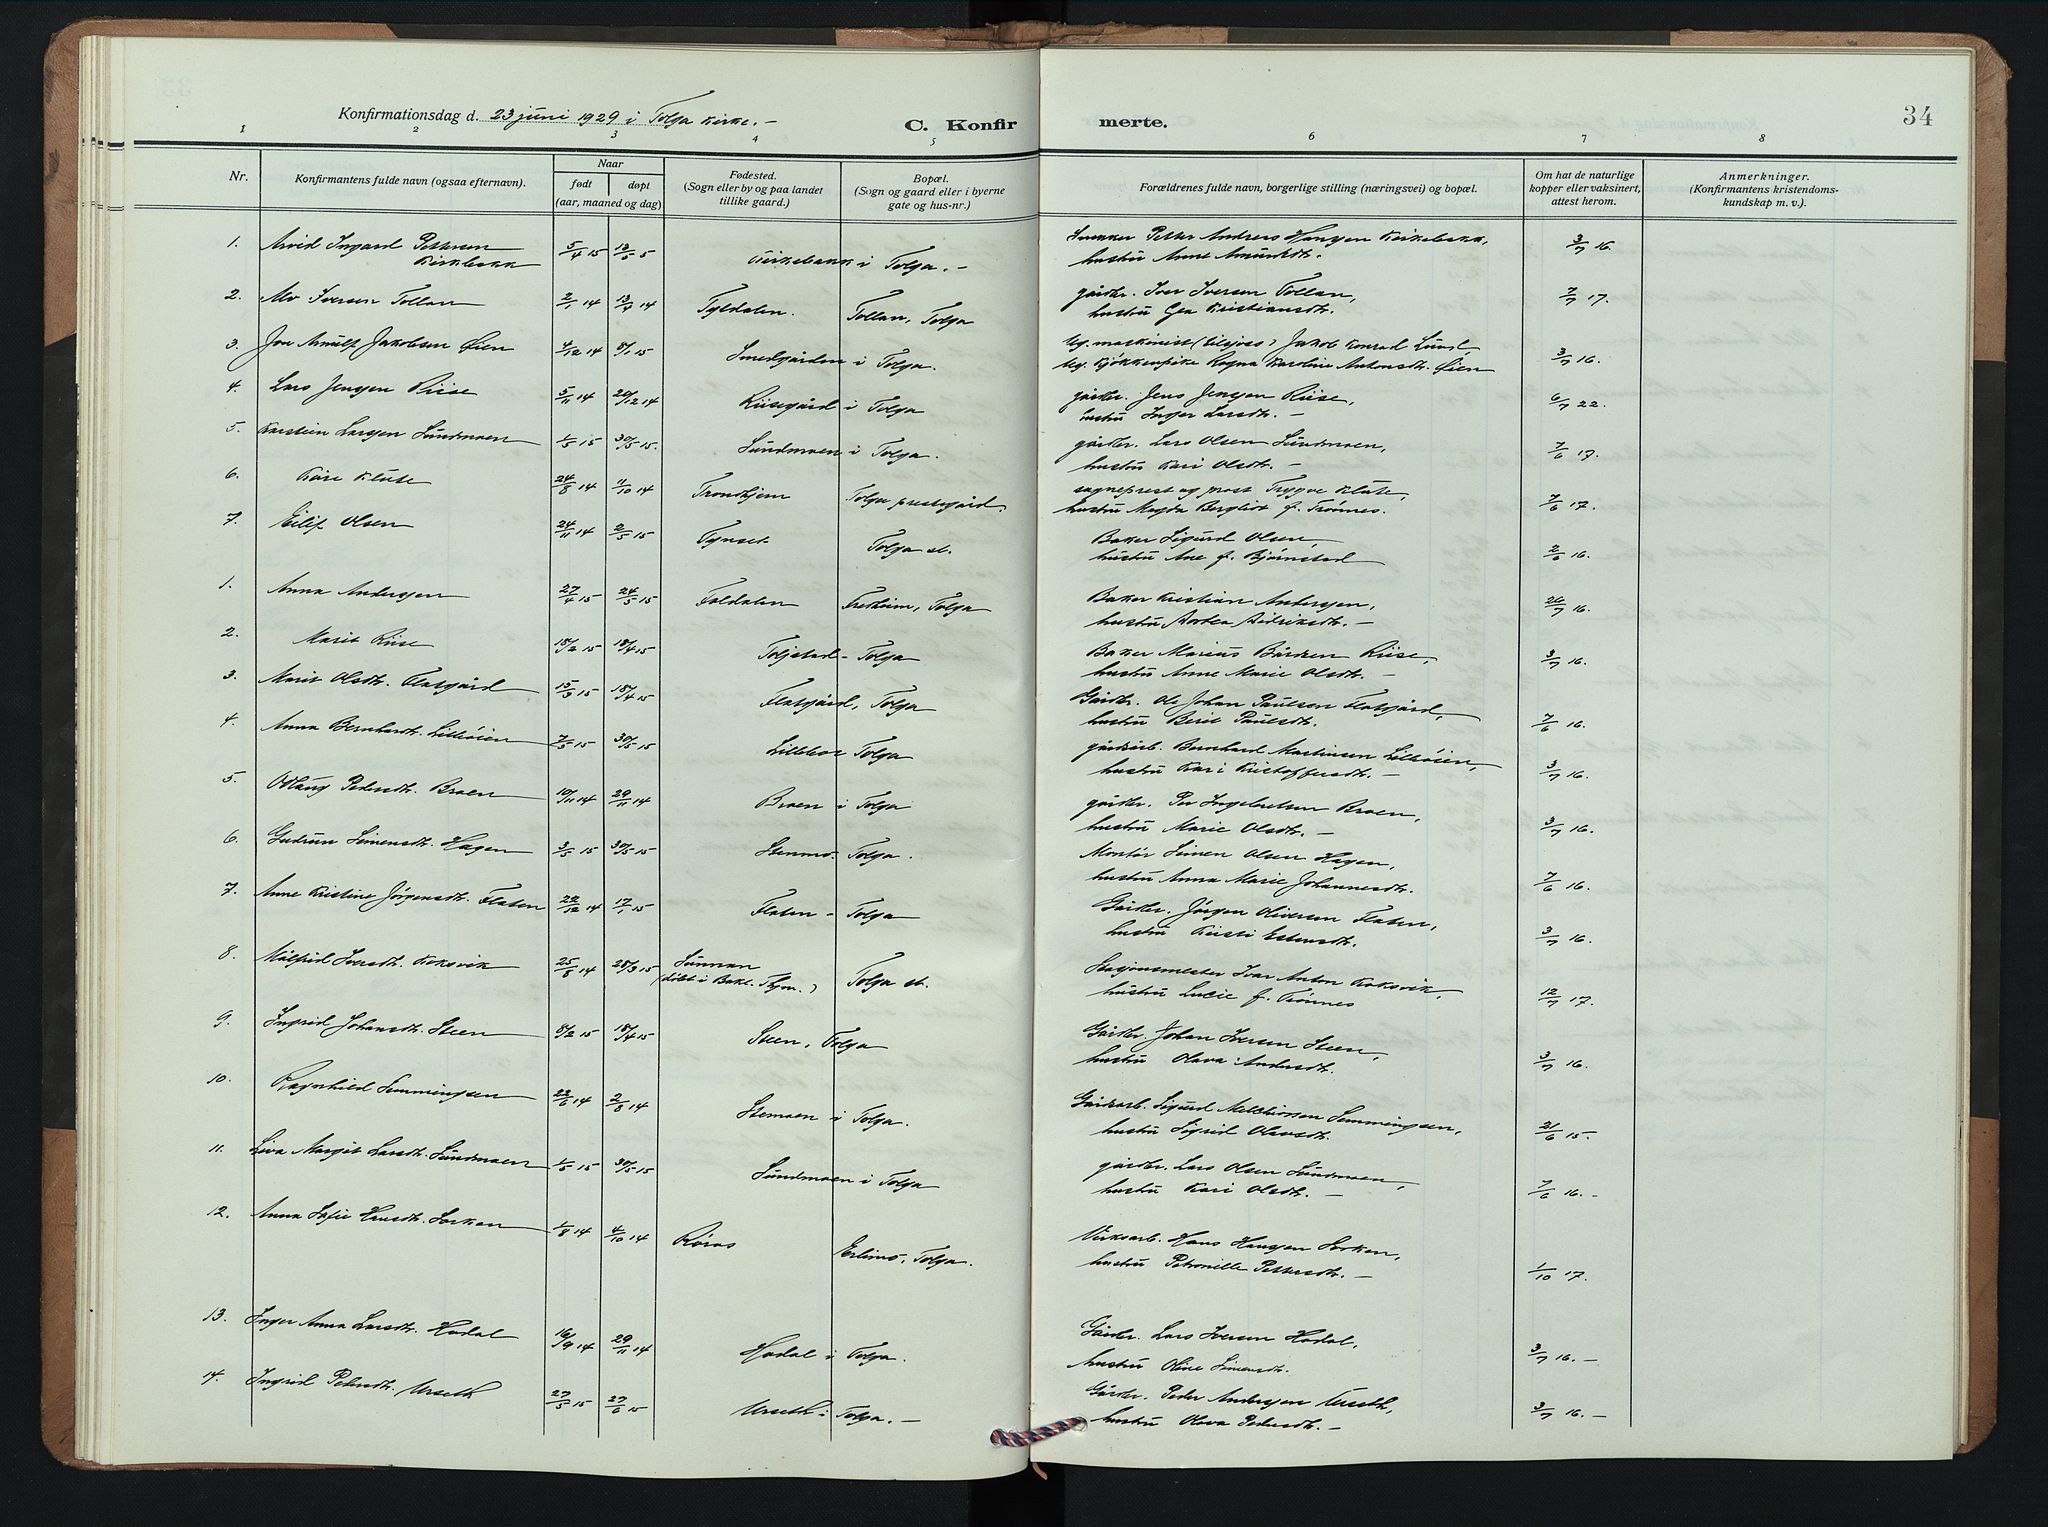 34
Konfirmationsdag d. 23 juni 1929 i Tolga kirke. -
C. Konfirmerte.
1 2 3 4 5 6 7 8
Nr.
Konfirmantens fulde navn (ogsaa efternavn).
Naar
født døpt
(aar, maaned og dag)
Fødested.
(Sogn eller by og paa landet
tillike gaard.)
Bopæl.
(Sogn og gaard eller i byerne
gate og hus-nr.)
Forældrenes fulde navn, borgerlige stilling (næringsvei) og bopæl.
Om hat de naturlige
kopper eller vaksinert,
attest herom.
Anmerkninger.
(Konfirmantens kristendoms-
kundskap m. v.).
1. Arvid Ingard Pettersen 5/4 15 13/5 5 Kirkebakk i Tolga. - Petter Andreas Hansen Kirkebakk, 3/7 16.
Kirkebakk hustru Anne Amundsdtr.
2. Alv Iversen Tollan 2/1 14 13/4 14 Tyldalen. Tollan, Tolga gårdbr. Iver Iversen Tollan, 7/7 17.
hustru Gea Kristiansdtr.
3. Jon Arnulf Jakobsen Øien 4/12 14 8/1 15 Smedgården i Tolga. Ug. maskinist Jakob Konrad Lund
Ug. kjøkkenpike Ragna Karoline Antonsdtr. Øien 3/7 16.
4. Lars Jensen Riise 5/11 14 20/12 14 Riisegård i Tolga gårdbr. Jens Jensen Riise, 6/7 22.
hustru Inger Larsdtr. -
5. Karstein Larsen Sundmoen 1/5 15 30/5 15. Sundmoen i Tolga. gårdbr. Lars Olsen Sundmoen, 7/6 17.
hustru Kari Olsdtr. -
6. Kåre Klüte 24/8 14 11/10 14 Trondhjem Tolga prestegård. sogneprest og prost Trygve Klüte,
hustru Magda Bergliot f. Trønnes. 7/6 17.
7. Eilif Olsen 24/11 14 2/5 15 Tynset Tolga st. Baker Sigurd Olsen,
hustru Ane f. Bjørnstad 2/6 16.
1. Anna Andersen 27/4 15 24/5 15 Foldalen Fredheim, Tolga Baker Kristian Andersen, 26/7 16.
hustru Dortea Didriksdtr. -
2. Marit Riise 18/2 15 18/4 15 Toljstad - Tolga Baker Marius Bårdsen Riise, 3/7 16.
hustru Anne Marie Olsdtr. -
3. Marit Olsdtr. Flatgård 15/3 15 18/4 15 Flatgård, Tolga Gårdbr. Ole Johan Paulsen Flatgård,
hustru Berit Paulsdtr. 7/6 16.
4. Anna Bernhardtr. Lilløien 7/5 15 30/5 15 Tolga gårdarb. Bernhard Martinsen Lilløien,
hustru Kari Kristoffersdtr. - 3/7 16.
5. Odlaug Pedersdtr. Broen 10/11 14 29/11 14 Broen i Tolga gårdbr. Per Ingebretsen Broen,
hustru Marie Olsdtr. - 3/7 16.
6. Gudrun Simensdtr. Hagen 3/5 15 30/5 15 Stenmo. Tolga. Montør Simen Olsen Hagen,
hustru Anna Marie Johannesdtr. 7/6 16.
7. Anne Kristine Jørgensdtr. Flaten 22/12 14 17/1 15 Flaten - Tolga Gårdbr. Jørgen Oliversen Flaten,
hustru Kirsti Estensdtr. 3/7 16.
8. Målfrid Iversdtr. Koksvik 25/8 14 28/3 15 Sunnan
(døbt i Bakl. Thjm.) Tolga st. Stasjonsmester Ivar Anton Koksvik,
hustru Lucie f. Trønnes 12/7 17.
9. Ingrid Johansdtr. Steen 8/2 15 18/4 15 Steen, Tolga Gårdbr. Johan Iversen Steen,
hustru Olava Andersdtr. 3/7 16.
10. Ragnhild Semmingsen 22/6 14 2/8 14 Stemoen i Tolga. Gårdarb. Sigurd Melchiorsen Semmingsen,
hustru Sigrid Olavsdtr. 21/6 15.
11. Liva Margit Larsdtr. Sundmoen 1/5 15 30/5 15 Sundmoen i Tolga gårdbr. Lars Olsen Sundmoen,
hustru Kari Olsdtr. - 7/6 16. -
12. Anna Sofie Hansdtr. Sorken 1/8 14 4/10 14 Røros Erlimo, Tolga. Verksarb. Hans Hansen Sorken,
hustru Petronille Pettersdtr. - 1/10 17.
13. Inger Anna Larsdtr. Hodal 16/9 14 29/11 14 Hodal i Tolga. Gårdbr. Lars Iversen Hodal,
hustru Oline Simensdtr. 3/7 16. -
14. Ingrid Pedersdtr. Urseth 27/5 15 27/6 15 Urseth i Tolga. - Gårdbr. Peder Andersen Urseth,
hustru Olava Pedersdtr. - 3/7 16. -